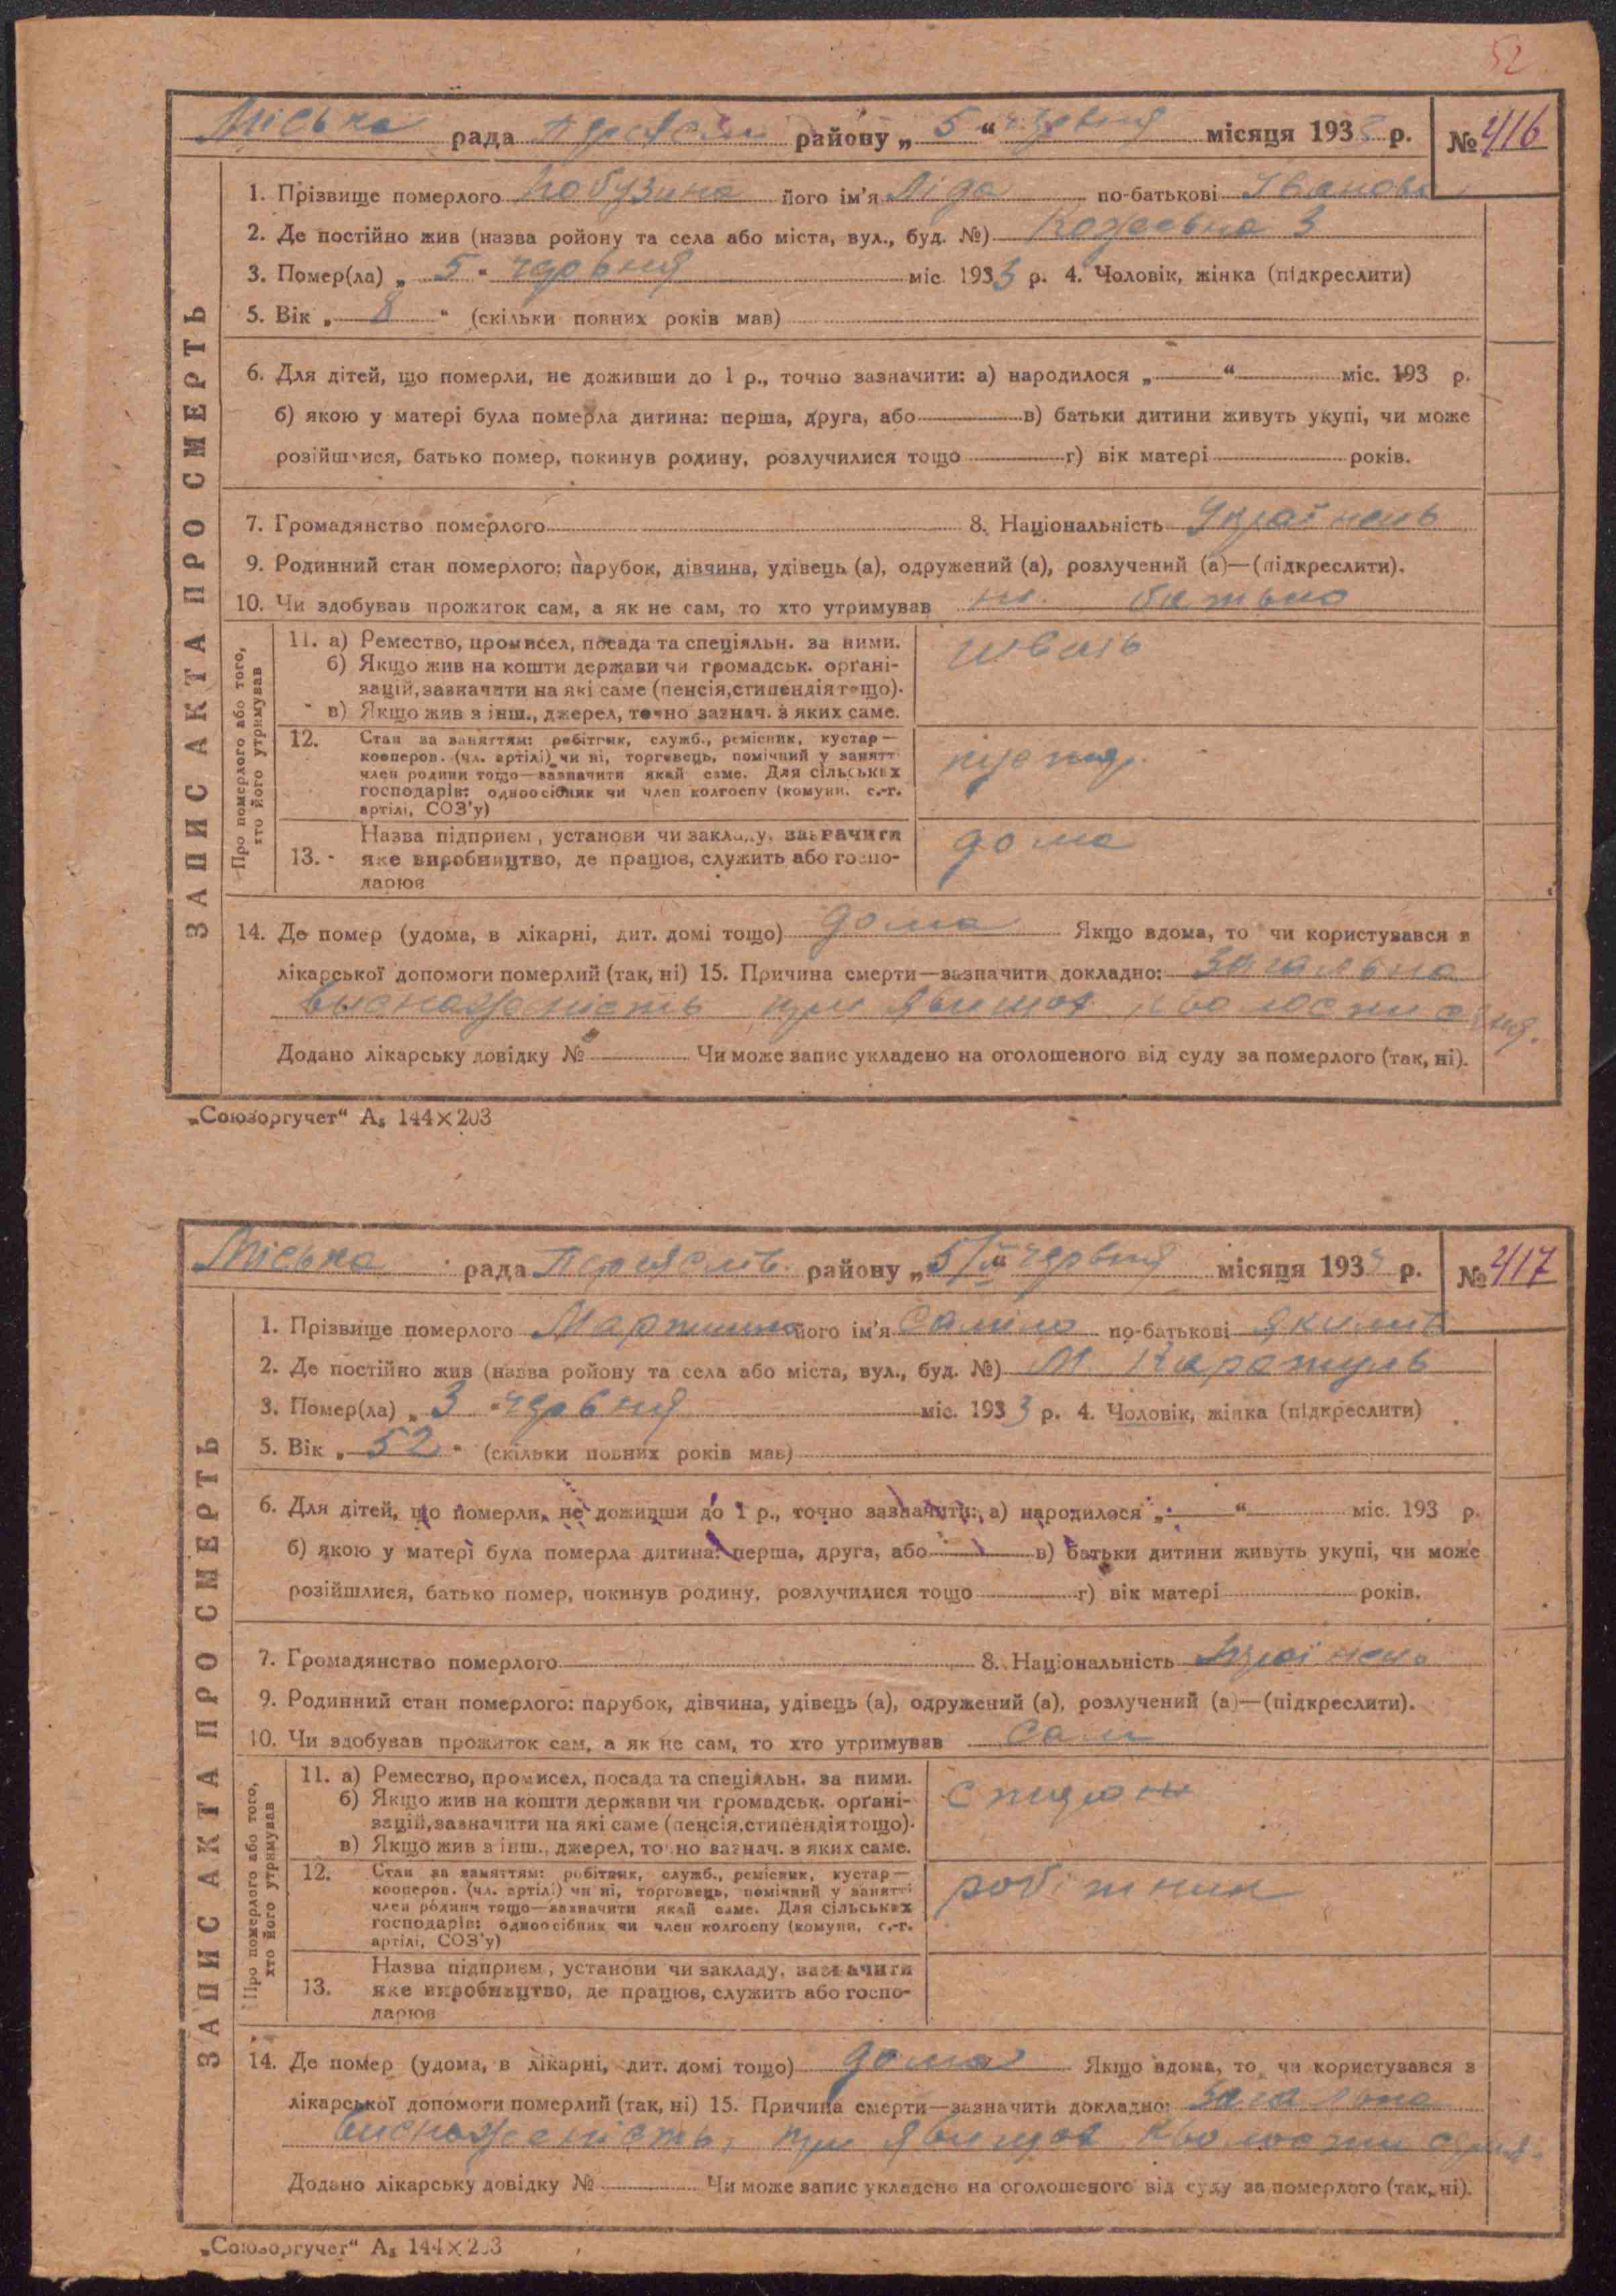 52
Міська рада Переяслів району „ 5 “ червня місяця 193 р. № 416
1. Прізвище померлого його ім'я Ліда по-батькові Іванова
2. Де постійно жив (назва ройону та села або міста, вул., буд. №) 3
3. Помер(ла) „ 5 “ червня міс. 1933 р. 4. Чоловік, жінка (підкреслити)
5. Вік „ 8 “ (скільки повних років мав)
6. Для дітей, що померли, не доживши до 1 р., точно зазначити: а) народилося „ “ міс. 193 р.
б) якою у матері була померла дитина: перша, друга, або в) батьки дитини живуть укупі, чи може
розійшлися, батько помер, покинув родину, розлучилися тощо г) вік матері років.
7. Громадянство померлого 8. Національність Українець
9. Родинний стан померлого: парубок, дівчина, удівець (а), одружений (а), розлучений (а)—(підкреслити).
10. Чи здобував прожиток сам, а як не сам, то хто утримував батько
ЗАПИС АКТА ПРО СМЕРТЬ
Про померлого або того, хто його утримував
11. а) Ремество, промисел, посада та спеціяльн. за ними. швець
б) Якщо жив на кошти держави чи громадськ. орґані-
зацій, зазначити на які саме (пенсія, стипендія тощо).
в) Якщо жив з інш., джерел, точно зазнач. з яких саме.
12. Стан за заняттям: робітник, служб., ремісник, кустар—
кооперов. (чл. артілі) чи ні, торговець, помічний у занятті
член родини тощо—зазначити який саме. Для сільських
господарів: одноосібник чи член колгоспу (комуни, с.-г.
артілі, СОЗ'у)
13. Назва підприєм., установи чи закладу, зазначити дома
яке виробництво, де працює, служить або госпо-
дарює
14. Де помер (удома, в лікарні, дит. домі тощо) дома Якщо вдома, то чи користувався з
лікарської допомоги померлий (так, ні) 15. Причина смерти—зазначити докладно: Загальна
при явищах кволости серця.
Додано лікарську довідку № Чи може запис укладено на оголошеного від суду за померлого (так, ні).
„Союзоргучет“ А₅ 144×203
Міська рада Переяслів. району „ 5/VI “ червня місяця 193 р. № 417
1. Прізвище померлого його ім'я по-батькові Якимів
2. Де постійно жив (назва ройону та села або міста, вул., буд. №) М. Каратуль
3. Помер(ла) „ 3 “ червня міс. 1933 р. 4. Чоловік, жінка (підкреслити)
5. Вік „ 52 “ (скільки повних років мав)
6. Для дітей, що померли, не доживши до 1 р., точно зазначити: а) народилося „ “ міс. 193 р.
б) якою у матері була померла дитина: перша, друга, або в) батьки дитини живуть укупі, чи може
розійшлися, батько помер, покинув родину, розлучилися тощо г) вік матері років.
7. Громадянство померлого 8. Національність Українець
9. Родинний стан померлого: парубок, дівчина, удівець (а), одружений (а), розлучений (а)—(підкреслити).
10. Чи здобував прожиток сам, а як не сам, то хто утримував сам
ЗАПИС АКТА ПРО СМЕРТЬ
Про померлого або того, хто його утримував
11. а) Ремество, промисел, посада та спеціяльн. за ними.
б) Якщо жив на кошти держави чи громадськ. орґані-
зацій, зазначити на які саме (пенсія, стипендія тощо).
в) Якщо жив з інш., джерел, точно зазнач. з яких саме.
12. Стан за заняттям: робітник, служб., ремісник, кустар— робітник
кооперов. (чл. артілі) чи ні, торговець, помічний у занятті
член родини тощо—зазначити який саме. Для сільських
господарів: одноосібник чи член колгоспу (комуни, с.-г.
артілі, СОЗ'у)
13. Назва підприєм., установи чи закладу, зазначити
яке виробництво, де працює, служить або госпо-
дарює
14. Де помер (удома, в лікарні, дит. домі тощо) дома Якщо вдома, то чи користувався з
лікарської допомоги померлий (так, ні) 15. Причина смерти—зазначити докладно: Загальна
виснаженість, при явищах кволости серця.
Додано лікарську довідку № Чи може запис укладено на оголошеного від суду за померлого (так, ні).
„Союзоргучет“ А₅ 144×203